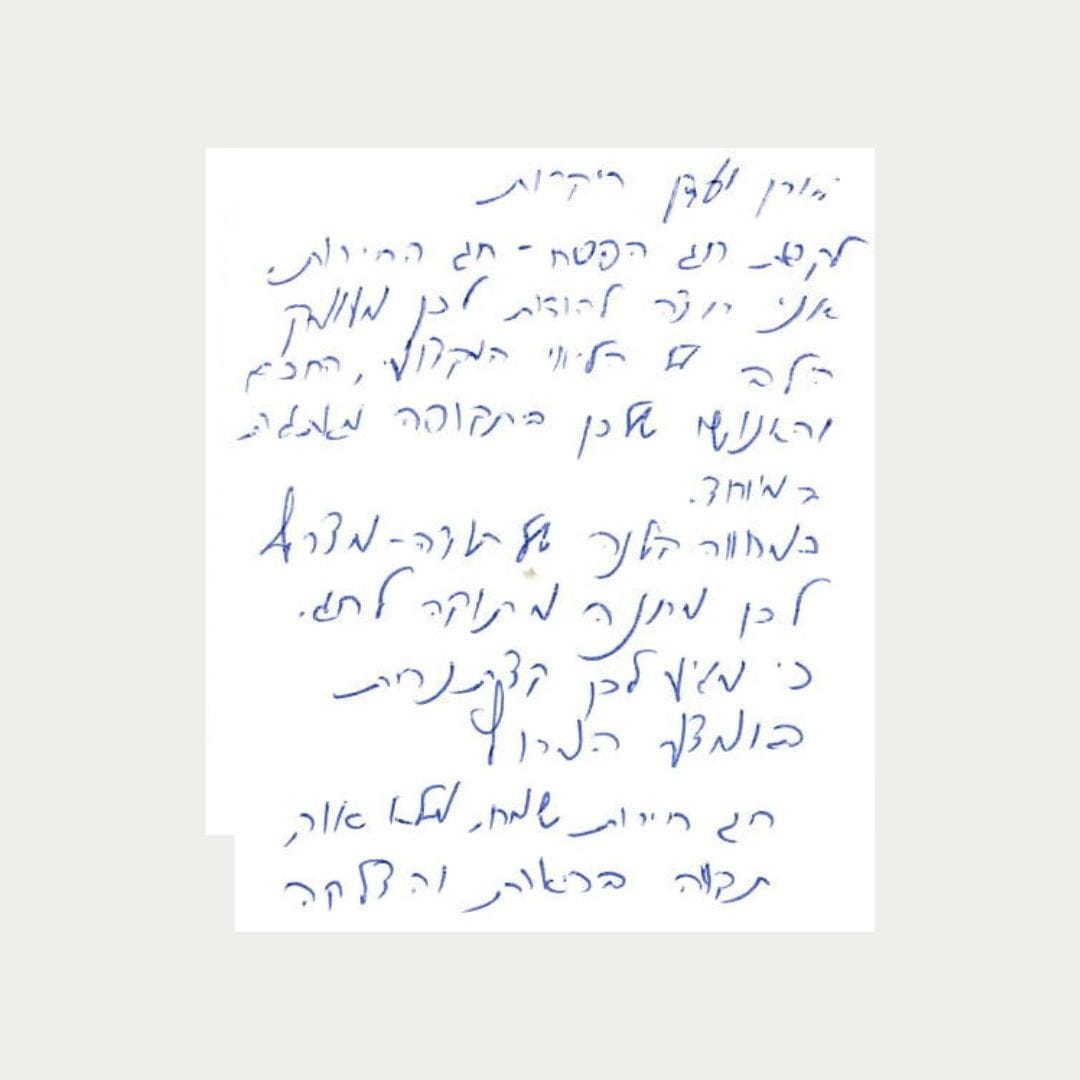 מורן ועדן היקרות
לקראת חג הפסח - חג החירות.
אני רוצה להודות לכן מעומק
הלב על הליווי המקצועי, החכם
והאנושי שלכן בתקופה מאתגרת
במיוחד.
כמחווה קטנה של תודה - מצרף
לכן מתנה מתוקה לחג.
כי מגיע לכן קצת נחת
בומצך המרוץ
חג חירות שמח, מלא אור,
תקווה בריאות והצלחה